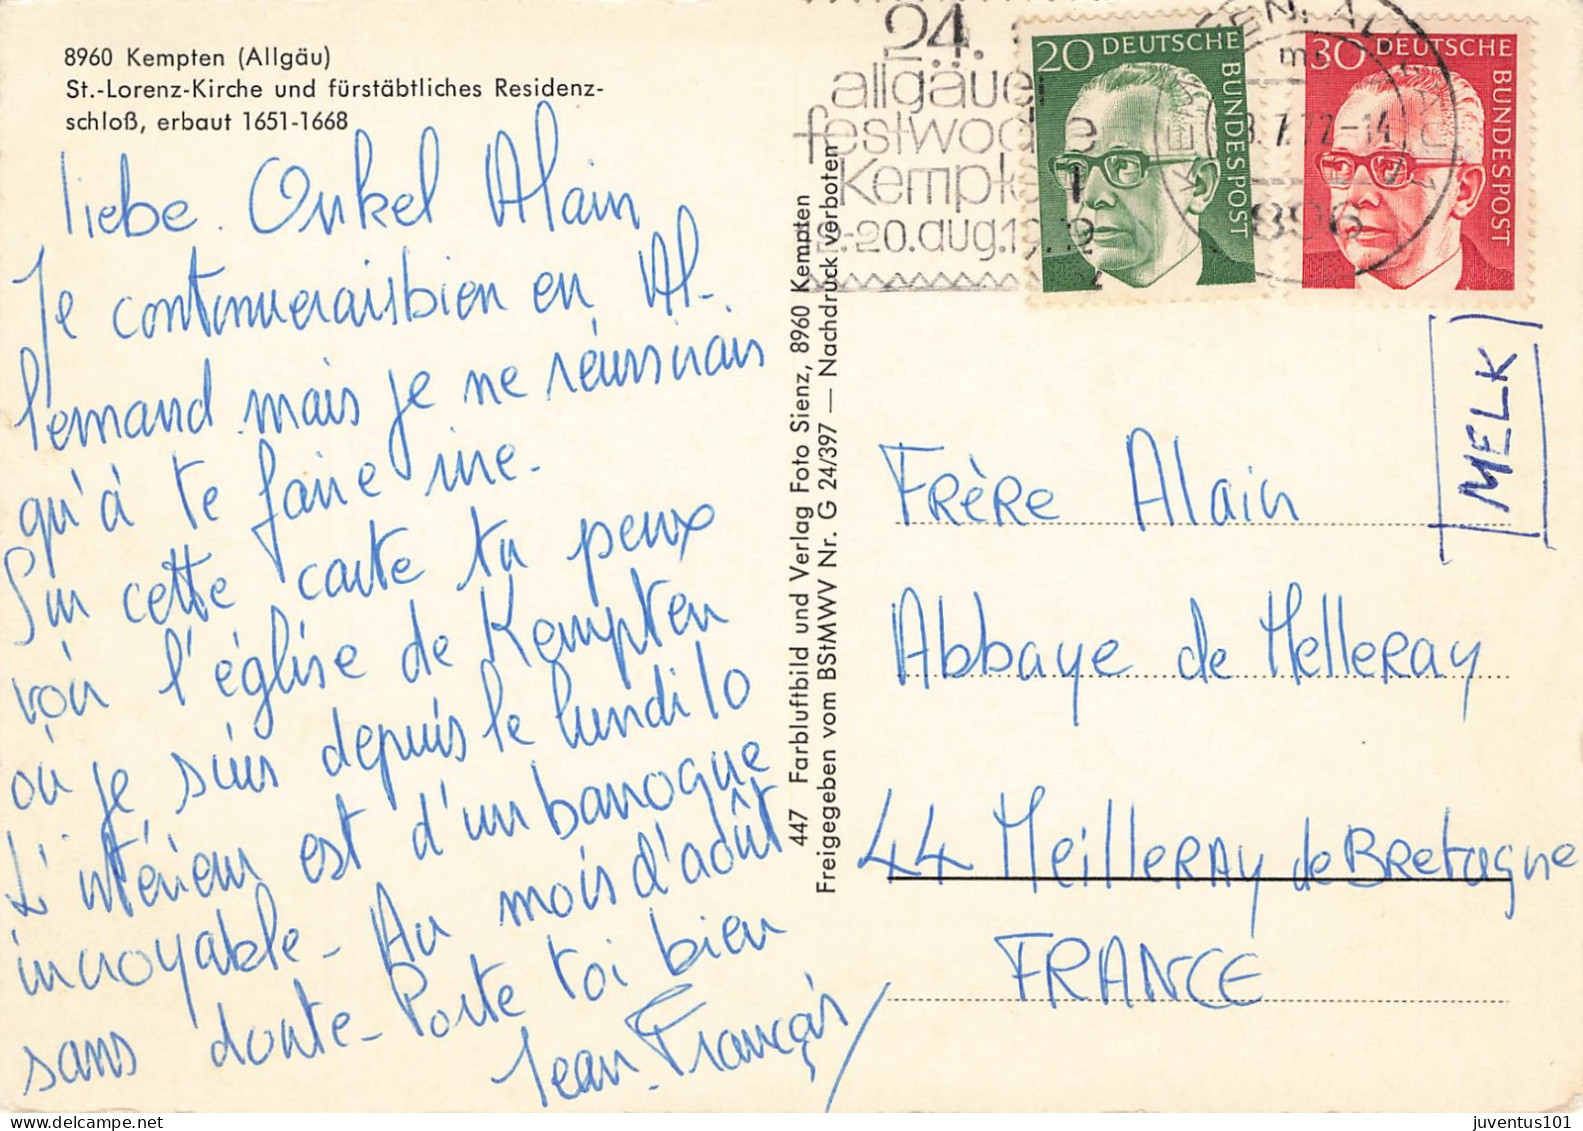 8960 Kempten (Allgäu)
St.-Lorenz-Kirche und fürstäbtliches Residenz-
schloß, erbaut 1651-1668
liebe Onkel Alain
Je continuerais bien en Al-
lemand mais je ne réussirais
qu'à te faire rire.
Sur cette carte tu peux
voir l'église de Kempten
où je suis depuis le lundi 10
L'intérieur est d'un baroque
incroyable - Au mois d'août
sans doute - Porte toi bien
Jean-François
447 Farbluftbild und Verlag Foto Sienz, 8960 Kempten
Freigegeben vom BStMWV Nr. G 24/397 — Nachdruck verboten
24.
allgäuer
festwoche
Kempten
-20. aug. 1972
20 DEUTSCHE
BUNDESPOST
30 DEUTSCHE
BUNDESPOST
.7.72-14
896
MELK
Frère Alain
Abbaye de Melleray
44 Meilleray de Bretagne
FRANCE
juventus101